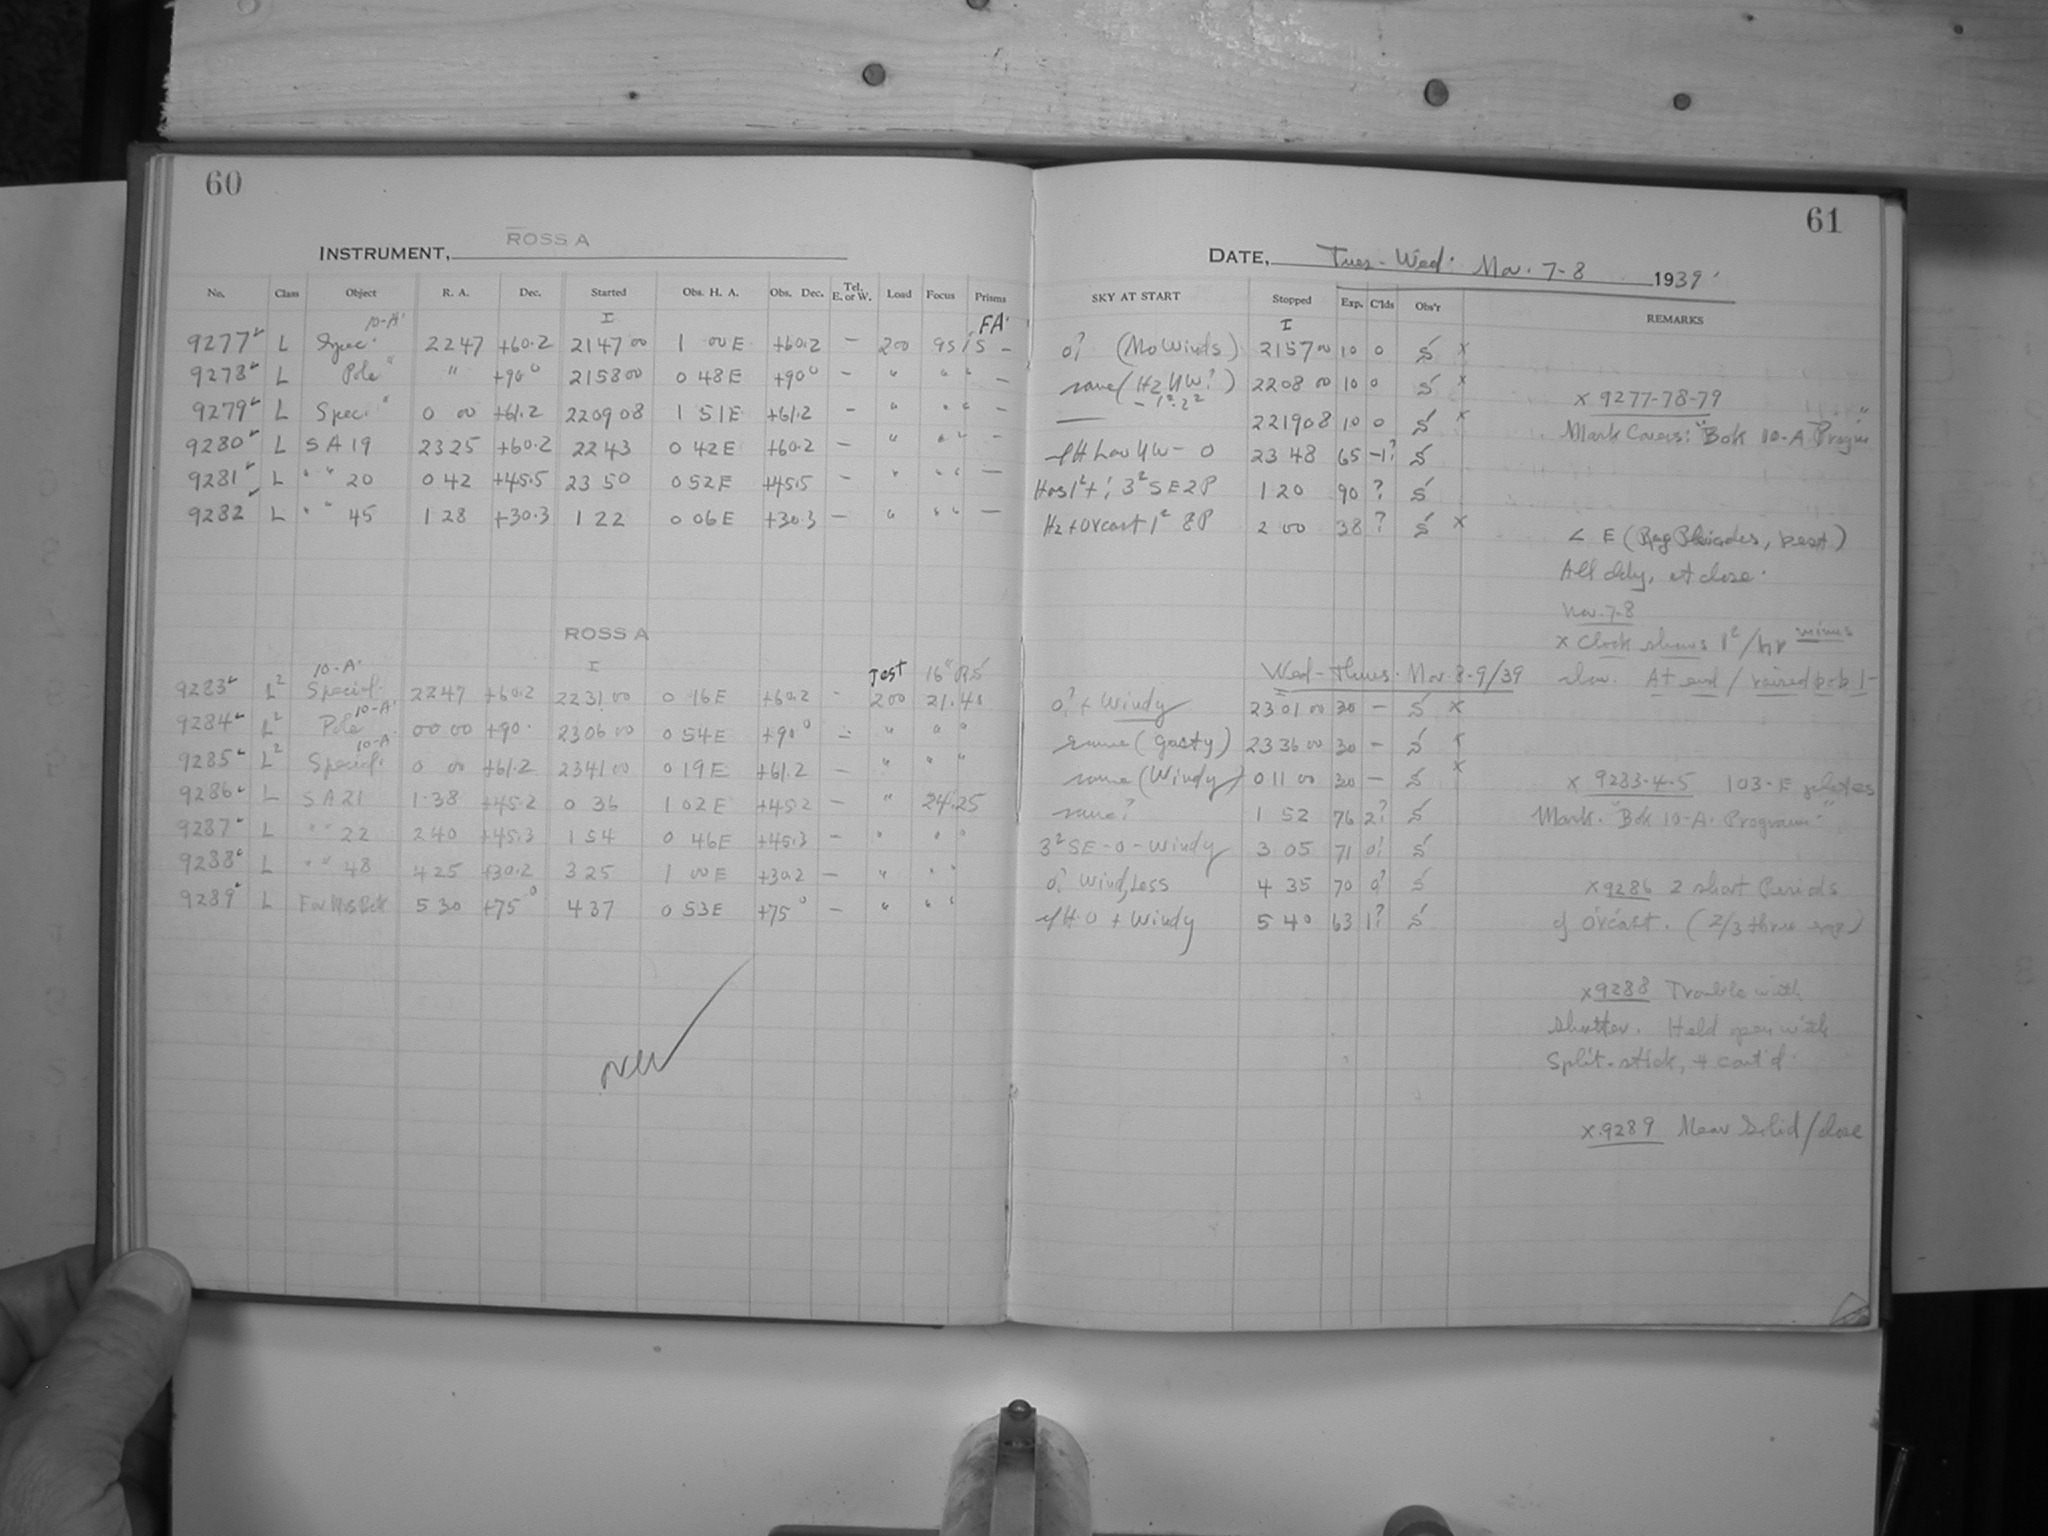 60
61
ROSS A
INSTRUMENT,
DATE, Tues - Wed. Nov. 7-8 1939
No. Class Object R. A. Dec. Started Obs. H. A. Obs. Dec. Tel. E. or W. Load Focus Prisms SKY AT START Stopped Exp. C'lds Obs'r REMARKS
10-A I FA I
9277 L Spec. 2247 +60.2 2147 00 1 00 E +60.2 - 200 95 - 0? (No Winds) 2157 00 10 0 S x
9278 L Pole " " +90° 2158 00 0 48 E +90° - " " " - same (Hz NW?) 2208 00 10 0 S x
9279 L Spec. " 0 00 +61.2 2209 08 1 51 E +61.2 - " " " - 2219 08 10 0 S x
x 9277-78-79
Mark Covers: "Bok 10-A Progm"
9280 L SA 19 2325 +60.2 22 43 0 42 E +60.2 - " " " - Low NW - 0 23 48 65 -1? S
9281 L " " 20 0 42 +45.5 23 50 0 52 E +45.5 - " " " - 3² SE 2P 1 20 90 ? S
9282 L " " 45 1 28 +30.3 1 22 0 06 E +30.3 - " " " - Hz + Orcast 1² 8P 2 00 38 ? S x
< E (Reg Pleiades, best)
All cldy, at close.
Nov. 7-8
x Clock shows 1²/hr minus
slow. At end / raised bob 1-
ROSS A
10-A I Test 16"
Wed - Thurs. Nov. 8-9/39
9283 L² Special. 2247 +60.2 2231 00 0 16 E +60.2 - 200 21.40 0? + Windy 2301 00 30 - S x
10-A
9284 L² Pole 00 00 +90. 2306 00 0 54 E +90° - " " " same (gusty) 2336 00 30 - S x
10-A
9285 L² Special. 0 00 +61.2 2341 00 0 19 E +61.2 - " " " same (Windy) 0 11 00 30 - S x
x 9283-4-5 103-E plates
Mark. "Bok 10-A. Program"
9286 L SA 21 1.38 +45.2 0 36 1 02 E +45.2 - " 24.25 same? 1 52 76 2? S
9287 L " " 22 2 40 +45.3 1 54 0 46 E +45.3 - " " " 3² SE - 0 - Windy 3 05 71 0? S
9288 L " " 48 4 25 +30.2 3 25 1 00 E +30.2 - " " " 0? Wind, Less 4 35 70 0? S
x 9286 2 short Periods
of Orcast. (2/3 thru exp)
9289 L 5 30 +75° 4 37 0 53 E +75° - " " " + Windy 5 40 63 1? S
x 9288 Trouble with
shutter. Held open with
Split-stick, + cont'd.
x 9289 Near Solid/close